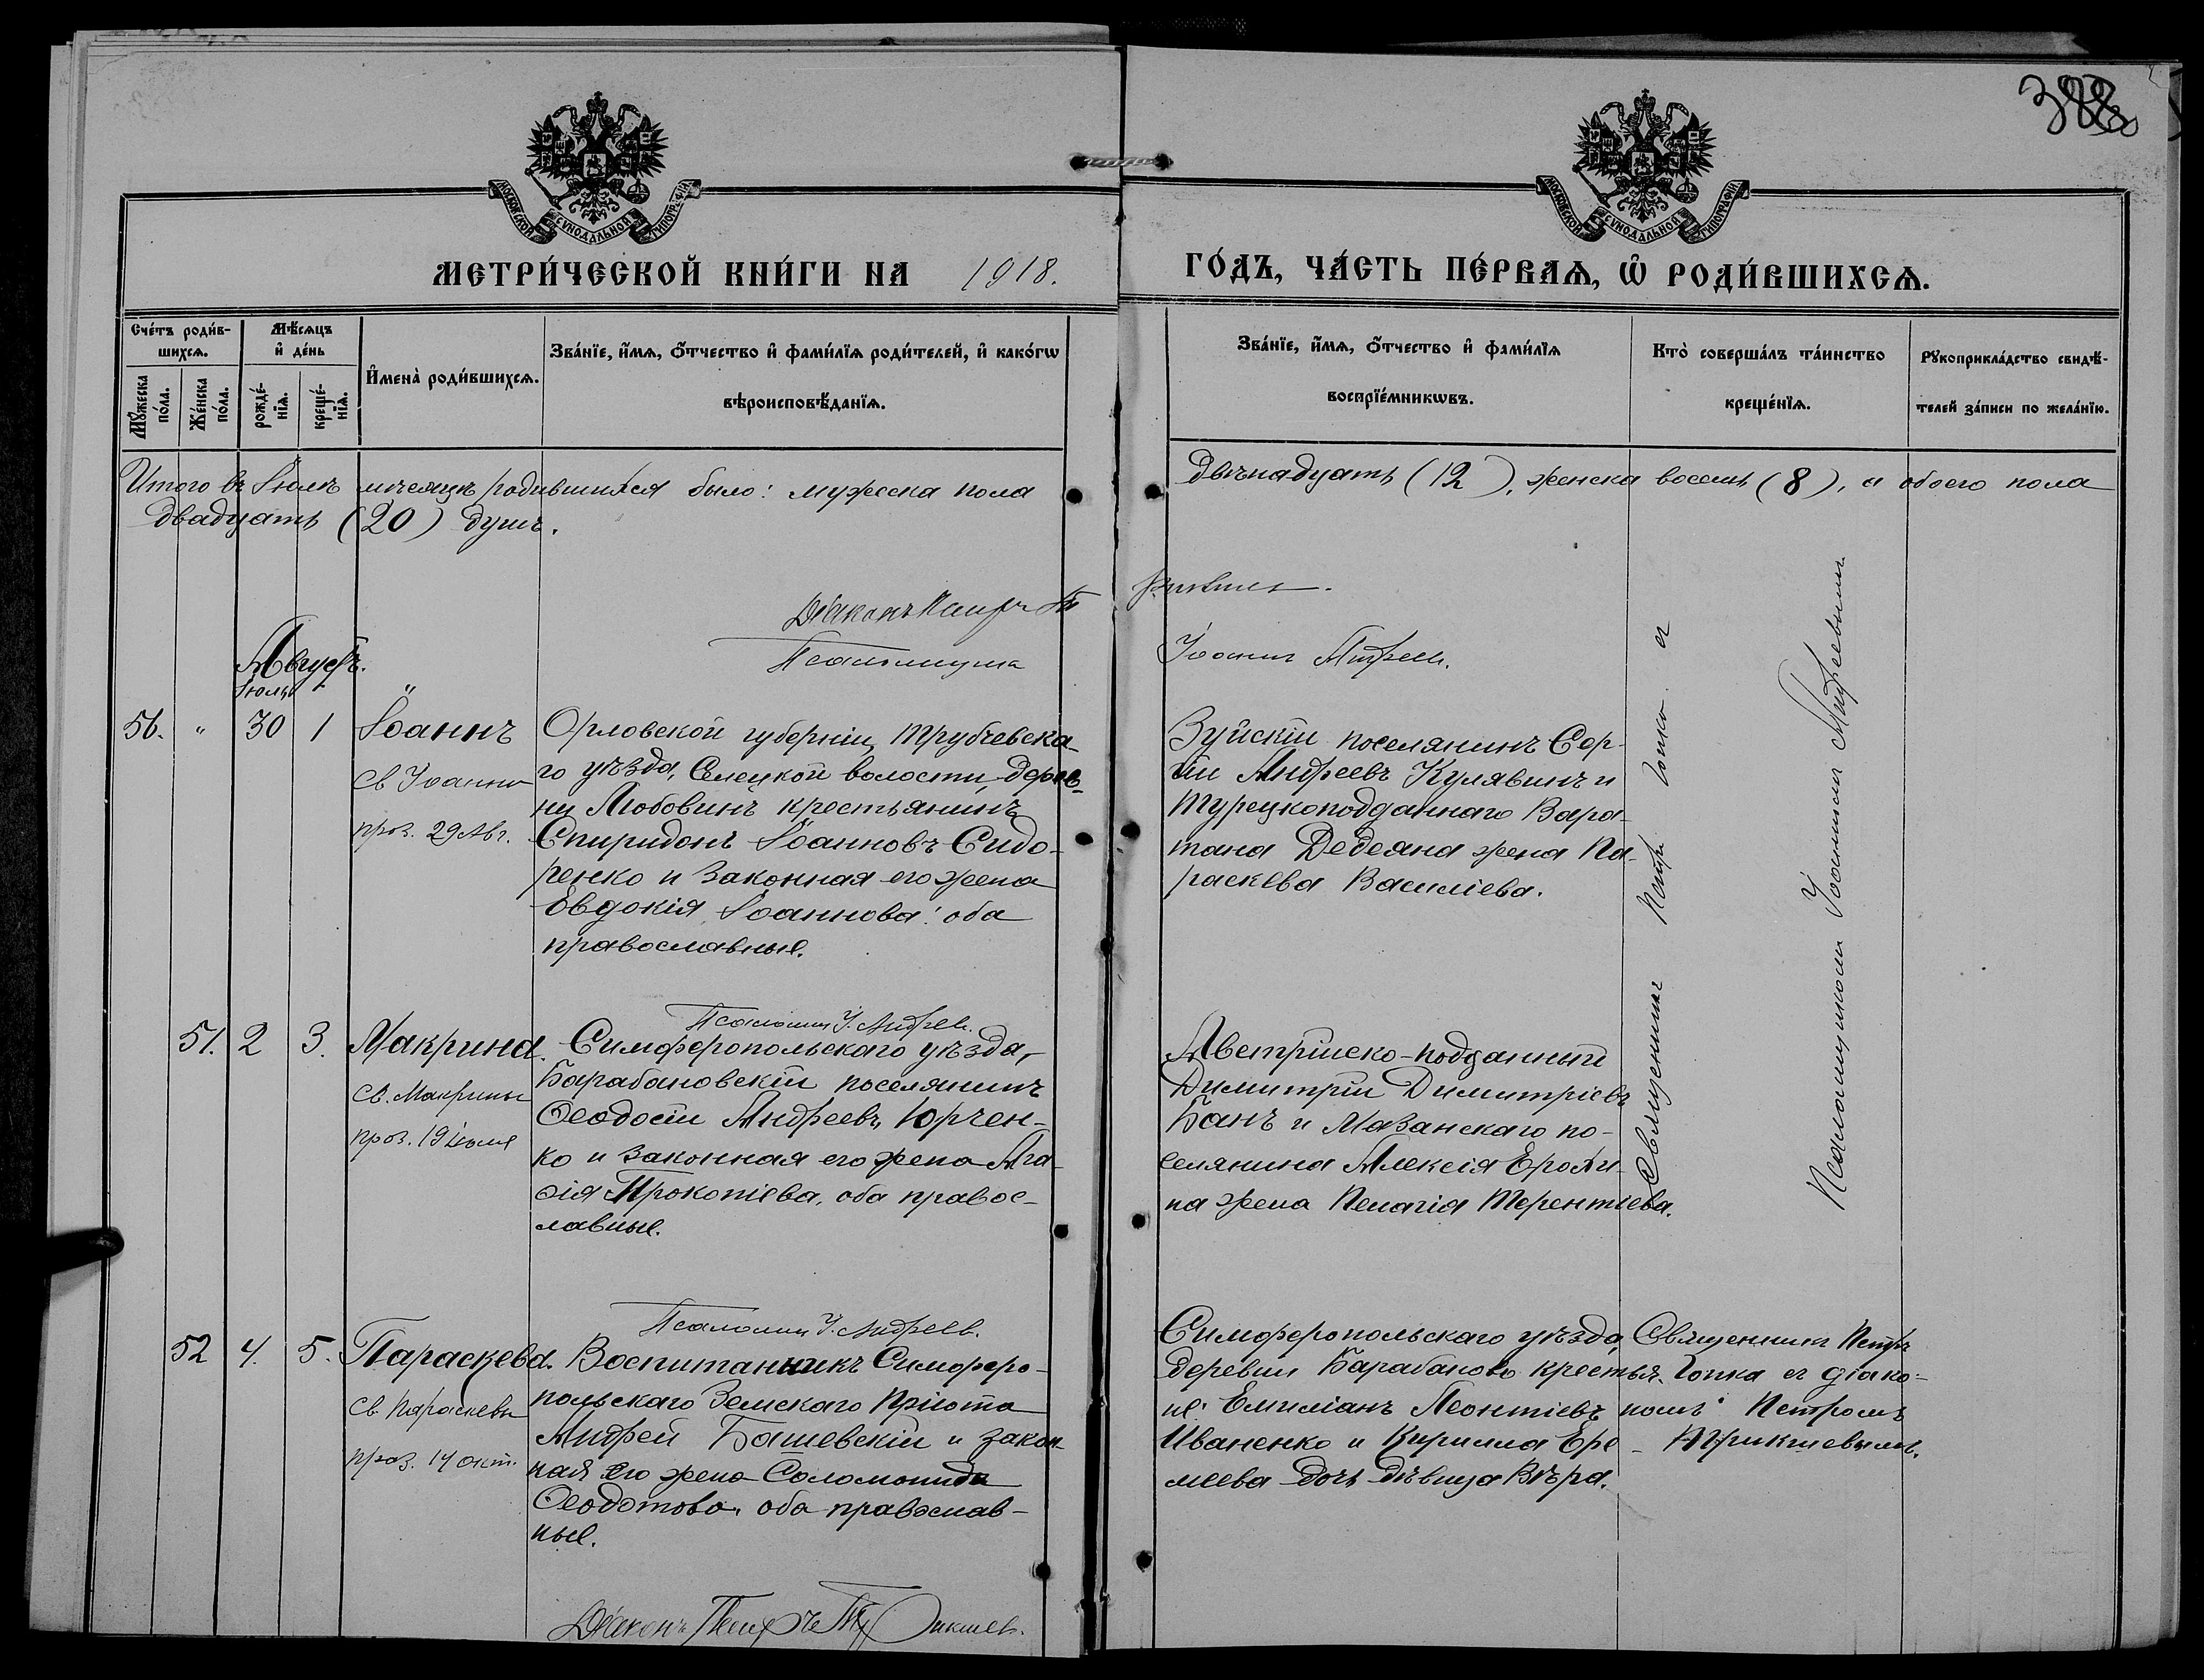 388
МОСКОВСКОЙ СѴНОДАЛЬНОЙ ТИПОГРАФІИ
МОСКОВСКОЙ СѴНОДАЛЬНОЙ ТИПОГРАФІИ
МЕТРИ́ЧЕСКОЙ КНИ́ГИ НА 1918.
ГО́ДЪ, ЧА́СТЬ ПЕ́РВАѦ, Ѡ҆ РОДИ́ВШИХСѦ.
Сче́тъ роди́в-
шихсѧ.
Мꙋ́жеска по́ла.
Же́нска по́ла.
Мѣ́сѧцъ
и҆ де́нь
рожде́-
нїѧ.
креще́-
нїѧ.
И҆мена̀ роди́вшихсѧ.
Зва́нїе, и҆́мѧ, ѻ҆́тчество и҆ фами́лїѧ роди́телей, и҆ како́гѡ
вѣроисповѣ́данїѧ.
Зва́нїе, и҆́мѧ, ѻ҆́тчество и҆ фами́лїѧ
воспрїе́мникѡвъ.
Кто̀ соверша́лъ та́инство
креще́нїѧ.
Рꙋкоприкла́дство свидѣ́-
телей за́писи по жела́нїю.
Итого въ Іюлѣ мѣсяцѣ родившихся было: мужеска пола
двѣнадцать (12), женска восемь (8), а обоего пола
двадцать (20) душъ.
Діаконъ Петръ
Псаломщикъ
Іоаннъ Андреевъ.
Августъ.
Іюль
56. " 30 1 Іоаннъ
св Іоанна
праз. 29 Авг.
Орловской губерніи, Трубчевска-
го уѣзда, Селецкой волости, дерев-
ни Любовинъ крестьянинъ
Спиридонъ Іоанновъ Сидо-
ренко и законная его жена
Евдокія Іоаннова: оба
православные.
Зуйскій поселянинъ Сер-
гій Андреевъ Кулявинъ и
Турецкоподданнаго Вара-
тана Дедеяна жена Па-
раскева Василіева.
Священникъ Петръ Гопко съ
Псаломщикомъ Іоанномъ Андреевымъ
Псаломщ І. Андреев.
51. 2 3. Макрина.
св. Макрины
праз. 19 іюля
Симферопольскаго уѣзда,
Барабановскій поселянинъ
Ѳеодосій Андреевъ Юрчен-
ко и законная его жена Ага-
ѳія Прокопіева, оба правос-
лавные.
Австрійско-подданный
Димитрій Димитріевъ
Банъ и Мазанскаго по-
селянина Алексія Ерохи-
на жена Пелагія Терентіева.
Псаломщ І. Андреев.
52 4. 5. Параскева.
св. Параскевы
праз. 14 окт.
Воспитанникъ Симферо-
польскаго Земскаго Пріюта
Андрей Башевскій и закон-
ная его жена Соломонида
Ѳеодотова, оба православ-
ные.
Симферопольскаго уѣзда,
деревни Барабаново крестья-
не: Емиліанъ Леонтіевъ
Иваненко и Кирилла Ере-
меева дочь дѣвица Вѣра.
Священникъ Петръ
Гопка съ діако-
номъ Петромъ
Діаконъ Петръ